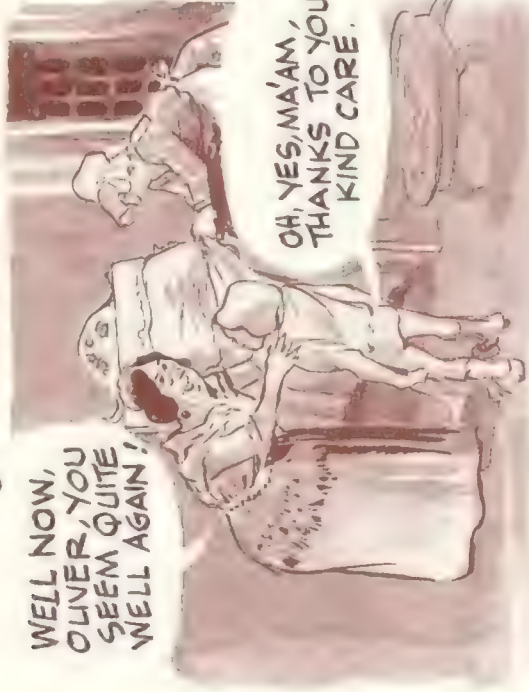 WELL NOW,
OLIVER, YOU
SEEM QUITE
WELL AGAIN!
OH, YES, MA'AM,
THANKS TO YOU
KIND CARE.